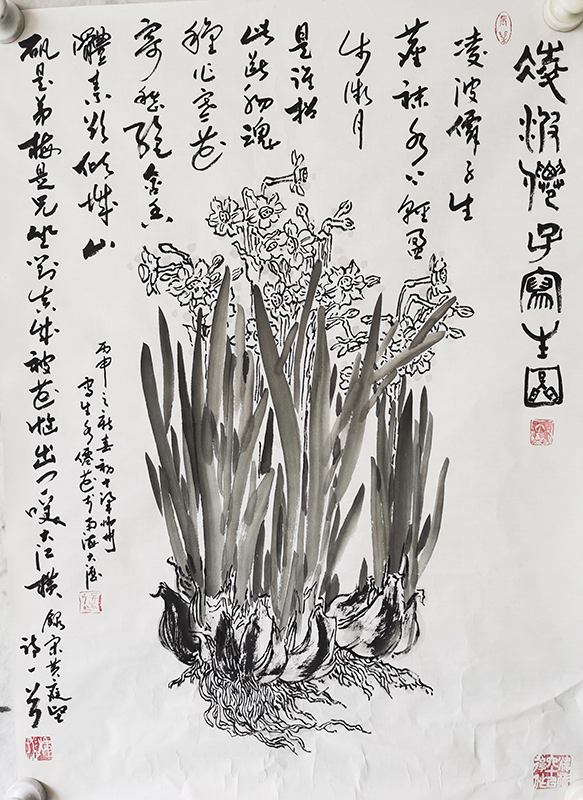 凌波僊子寫生圖
凌波僊子生
塵袜水上輕盈
步微月
是誰招
此斷腸魂
種作寒花
寄愁絕含香
體素欲傾城山
矾是弟梅是兄坐對真成被花惱出門一咲大江橫
錄宋黃庭堅
詩一首
丙申之新春初十梁
寫生水僊花於南海大瀝